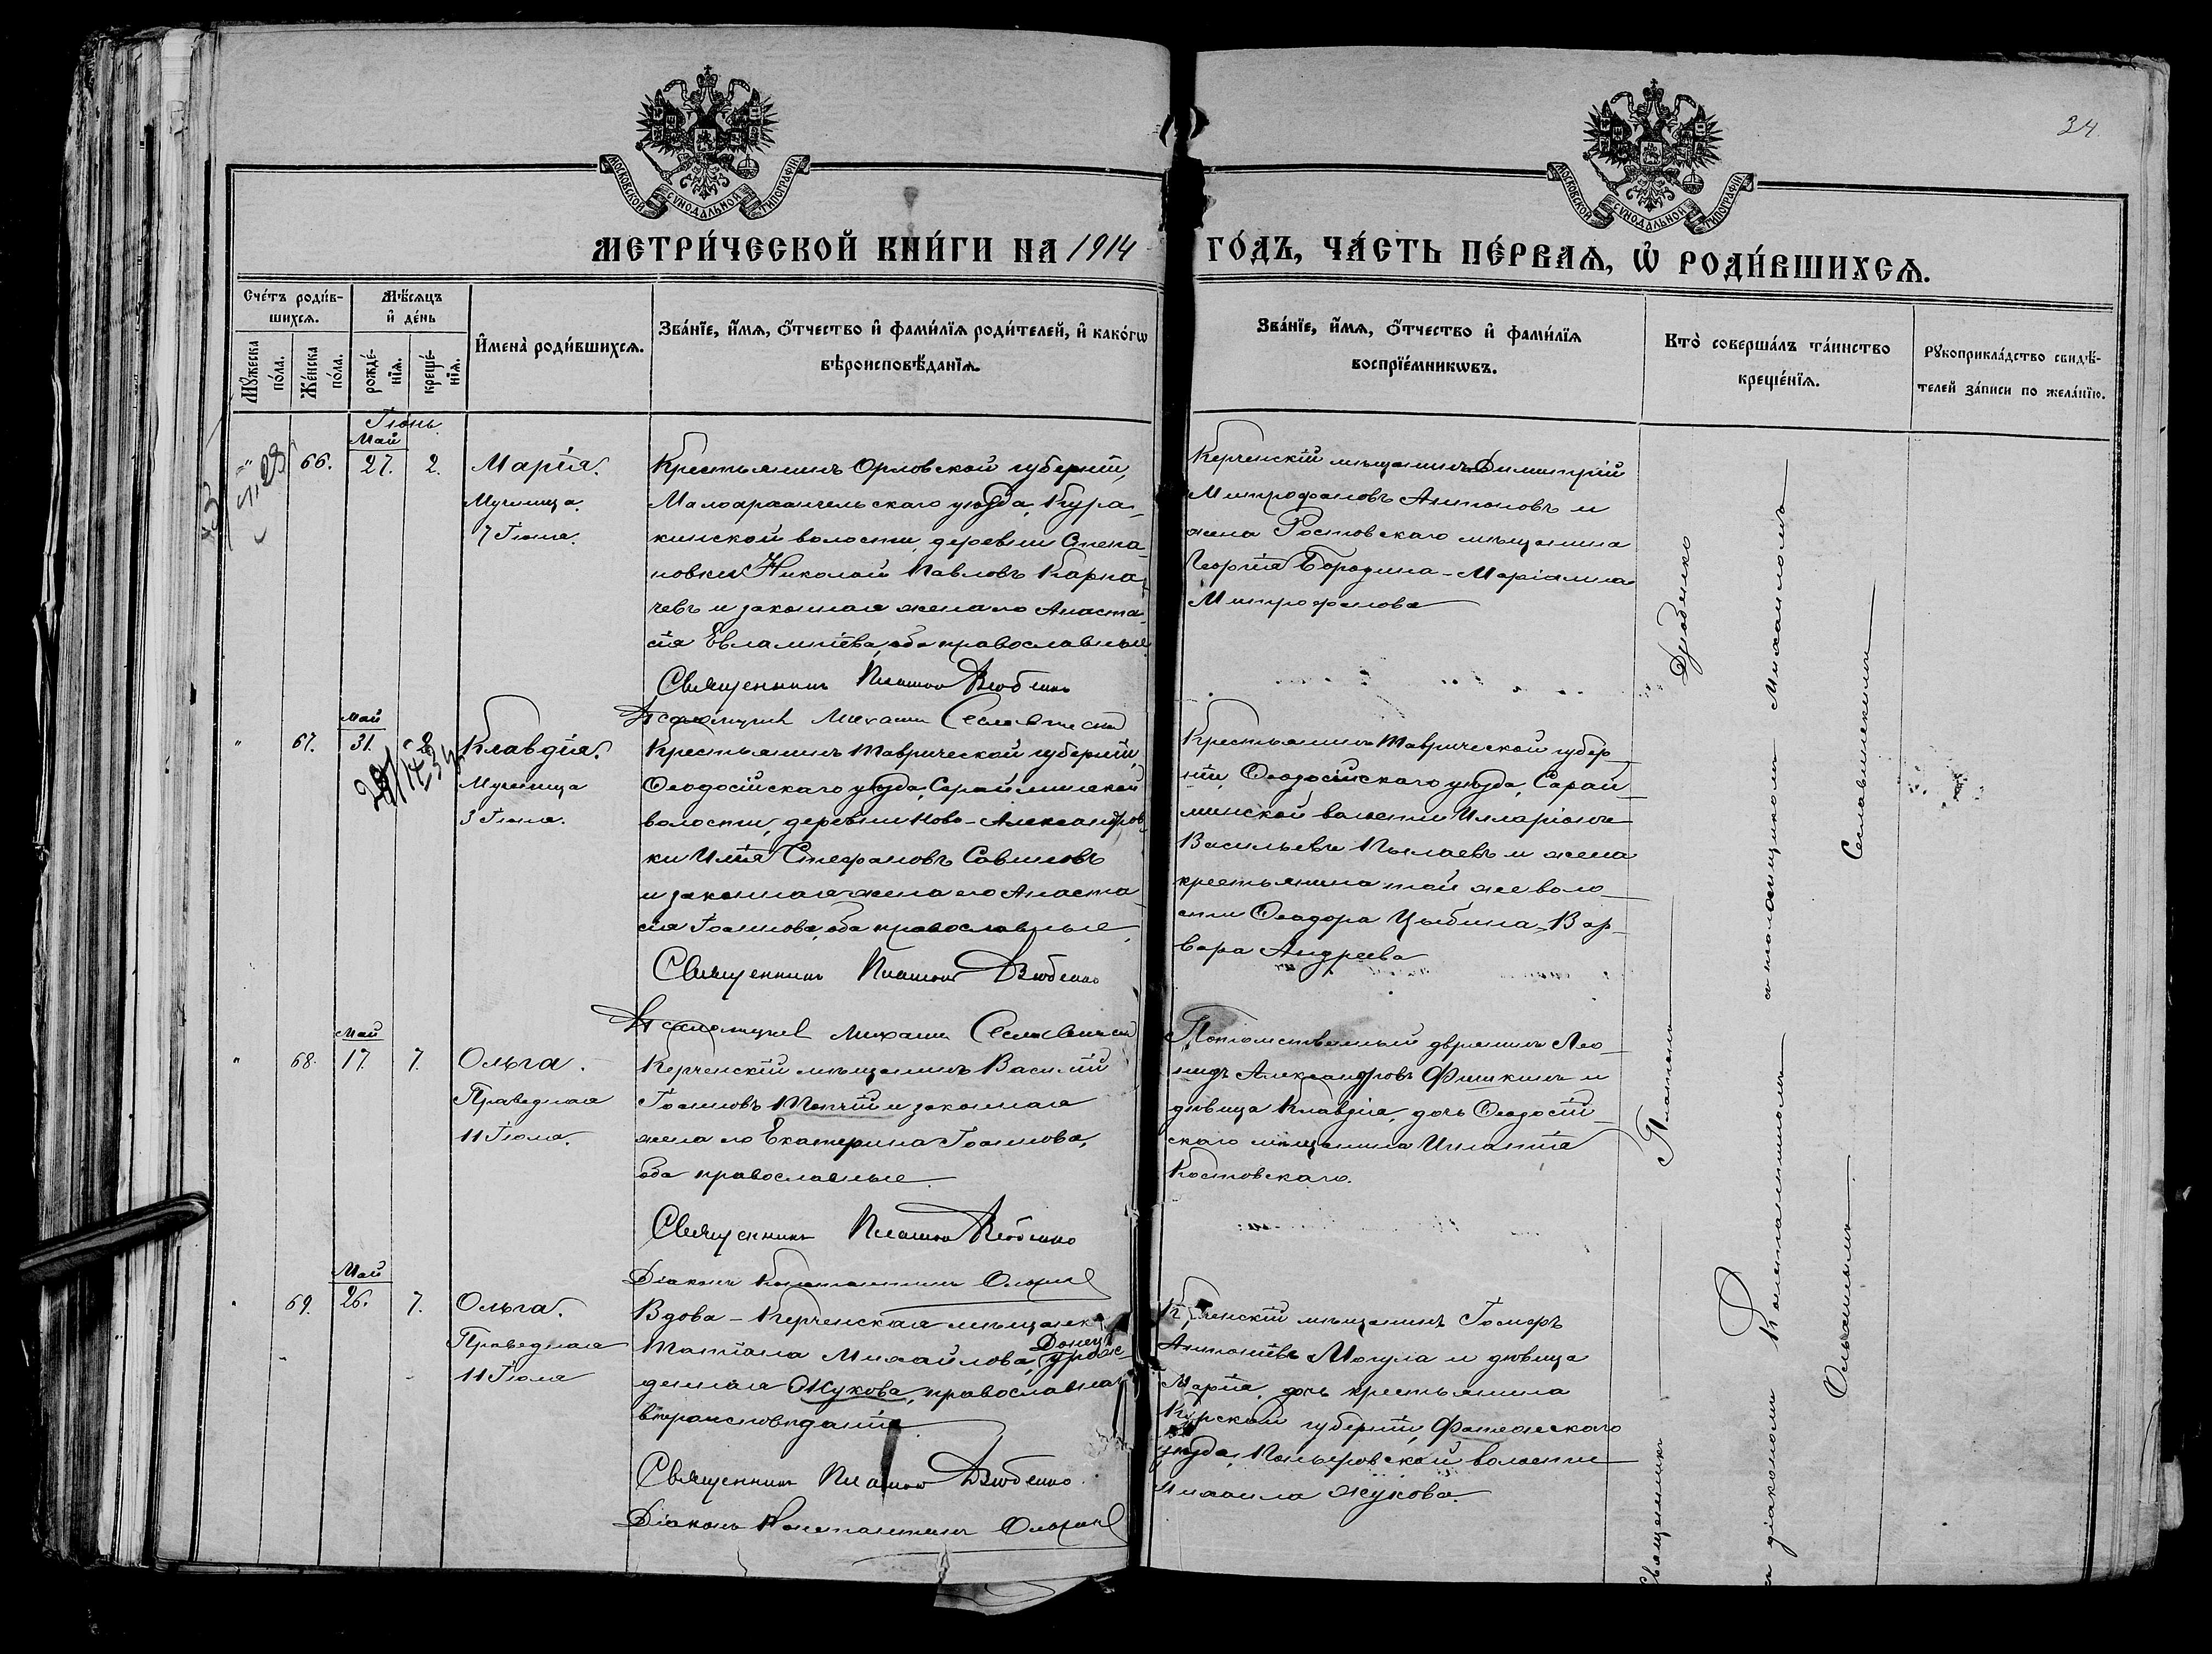 34
МОСКОВСКОЙ СѴНОДАЛЬНОЙ ТИПОГРАФІИ
МОСКОВСКОЙ СѴНОДАЛЬНОЙ ТИПОГРАФІИ
МЕТРИ́ЧЕСКОЙ КНИ́ГИ НА 1914 ГО́ДЪ, ЧА́СТЬ ПЕ́РВАѦ, Ѡ҆ РОДИ́ВШИХСѦ.
Сче́тъ роди́в-
шихсѧ.
Мѣ́сѧцъ
и҆ де́нь
Мꙋ́жеска
по́ла.
Же́нска
по́ла.
рожде́-
нїѧ.
креще́-
нїѧ.
И҆мена̀ роди́вшихсѧ.
Зва́нїе, и҆́мѧ, ѻ҆́тчество и҆ фами́лїѧ роди́телей, и҆ како́гѡ
вѣроисповѣ́данїѧ.
Зва́нїе, и҆́мѧ, ѻ҆́тчество и҆ фами́лїѧ
воспрїе́мникѡвъ.
Кто̀ соверша́лъ та́инство
креще́нїѧ.
Рꙋкоприкла́дство свидѣ́-
телей за́писи по жела́нїю.
Іюнь
Май
66. 27. 2. Марія.
Мученица
7 Іюня.
Крестьянинъ Орловской губерніи,
Малоархангельскаго уѣзда, Кура-
кинской волости, деревни Степа-
новки Николай Павловъ Карпа-
чевъ и законная жена его Анаста-
сія Евлампіева, оба православные
Священникъ Платонъ Дзюбенко
Псаломщикъ Михаилъ Сеславинскій
Керченскій мѣщанинъ Димитрій
Митрофановъ Антоновъ и
жена Ростовскаго мѣщанина
Георгія Бородина - Маріамна
Митрофанова
Май
67. 31. Клавдія.
Мученица
3 Іюня.
Крестьянинъ Таврической губерніи,
Ѳеодосійскаго уѣзда, Сарайминской
волости, деревни Ново-Александров-
ки Илія Стефановъ Савиновъ
и законная жена его Анаста-
сія Іоаннова, оба православные
Священникъ Платонъ Дзюбенко
Псаломщикъ Михаилъ Сеславинскій
Крестьянинъ Таврической губер-
ніи, Ѳеодосійскаго уѣзда, Сарай-
минской волости Илларіонъ
Васильевъ и жена
крестьянина той же воло-
сти Ѳеодора Цыбина - Вар-
вара Андреева
Май
68. 17. 7. Ольга.
Праведная
11 Іюля.
Керченскій мѣщанинъ Василій
Іоанновъ Топчій и законная
жена его Екатерина Іоаннова,
оба православные
Священникъ Платонъ Дзюбенко
Діаконъ Константинъ
Потомственный дворянинъ Лео-
нидъ Александровъ Фишкинъ и
дѣвица Клавдія, дочь Ѳеодосій-
скаго мѣщанина Игнатія
Костовскаго.
Май
69. 26. 7. Ольга.
Праведная
11 Іюля
Вдова - Керченская мѣщанка
Татіана Михайлова Донец, урож-
денная Жукова, православнаго
вѣроисповѣданія
Священникъ Платонъ Дзюбенко
Діаконъ Константинъ
Керченскій мѣщанинъ
Антоніевъ Могула и дѣвица
Марія, дочь крестьянина
Курской губерніи, Фатежскаго
уѣзда, волости
Михаила Жукова.
Священникъ Платонъ Дзюбенко
съ діакономъ Константиномъ и псаломщикомъ Михаиломъ
Сеславинскимъ